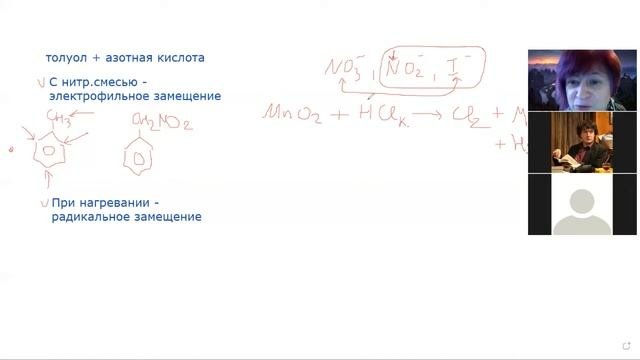 толуол + азотная кислота
С нитр.смесью -
электрофильное замещение
CH3
CH2NO2
При нагревании -
радикальное замещение
NO3⁻, NO2⁻, I⁻
MnO2 + HClк. → Cl2 + M
+ H